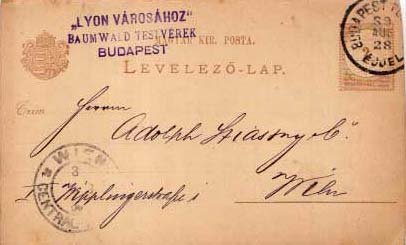 „LYON VÁROSÁHOZ"
BAUMWALD TESTVÉREK
BUDAPEST
MAGYAR KIR. POSTA.
LEVELEZŐ-LAP.
BUDAPEST
89
AUG
28
ÉJJEL
Czim
Herrn
Adolph Stiassny & C.
WIEN
CENTRAL
I Wipplingerstraße 1
Wien